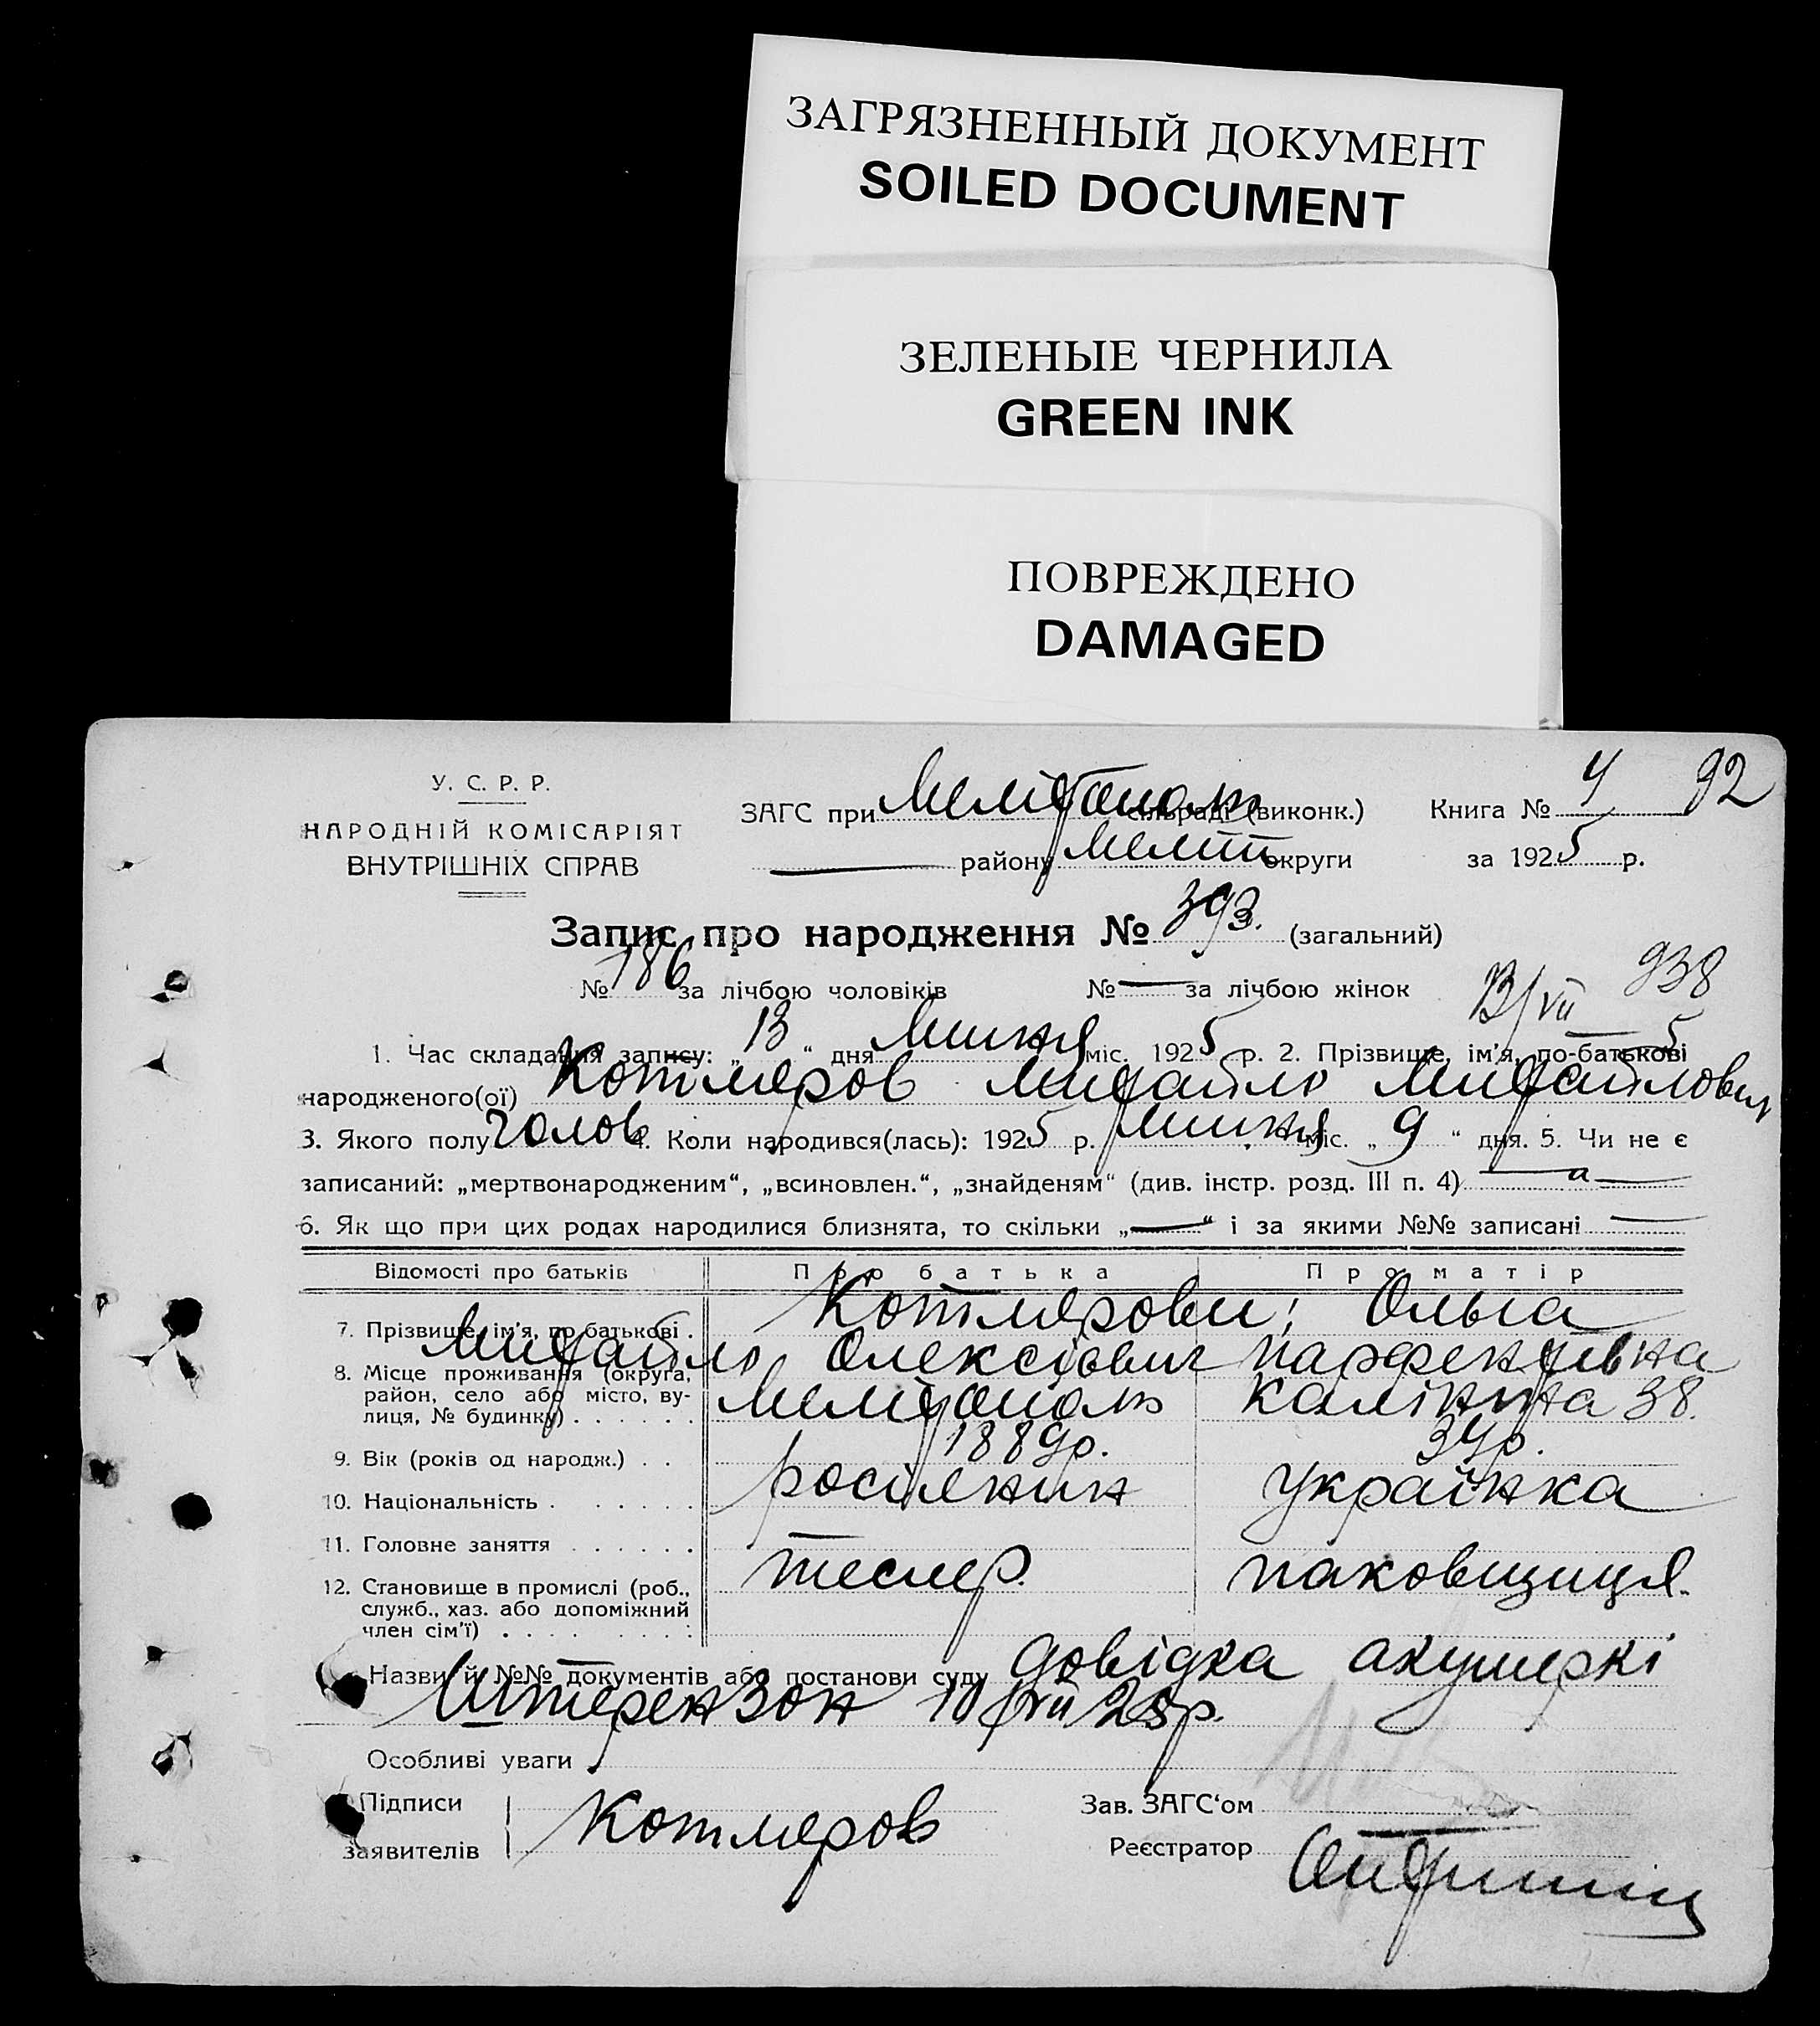 ЗАГРЯЗНЕННЫЙ ДОКУМЕНТ
SOILED DOCUMENT
ЗЕЛЕНЫЕ ЧЕРНИЛА
GREEN INK
ПОВРЕЖДЕНО
DAMAGED
У. С. Р. Р.
НАРОДНІЙ КОМІСАРІЯТ
ВНУТРІШНІХ СПРАВ
ЗАГС при Мелітополь сільраді (виконк.) Книга № 4 92
— району Меліт округи за 1925 р.
Запис про народження № 393. (загальний)
№ 186 за лічбою чоловіків № — за лічбою жінок 13/VII 938
1. Час складання запису: „ 13 “ дня Липня міс. 1925 р. 2. Прізвище, ім'я, по-батькові
народженого(ої) Котляров Михайло Михайлович
3. Якого полу чолов 4. Коли народився(лась): 1925 р. Липня міс. „ 9 “ дня. 5. Чи не є
записаний: „мертвонародженим“, „всиновлен.“, „знайденям“ (див. інстр. розд. III п. 4) —
6. Як що при цих родах народилися близнята, то скільки „—“ і за якими №№ записані —
Відомості про батьків Про батька Про матір
7. Прізвище, ім'я, по батькові . Котлярови; Ольга
Михайло Олексієвич Парфентієвна
8. Місце проживання (округа, район, село або місто, вулиця, № будинку) . . . . . . Мелітополь Калініна 38.
9. Вік (років од народж.) . . 1889р. 34р.
10. Національність . . . . . . росіянин українка
11. Головне заняття . . . . . .
тесляр. паковщиця.
12. Становище в промислі (роб.,
служб., хаз. або допоміжний
член сім'ї) . . . . . . . .
Назви й №№ документів або постанови суду довідка акушеркі
Штерензон 10/VII 25р.
Особливі уваги
Підписи
заявителів Котляров
Зав. ЗАГС'ом
Реєстратор